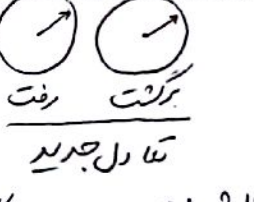 رفت برگشت
تعادل جدید